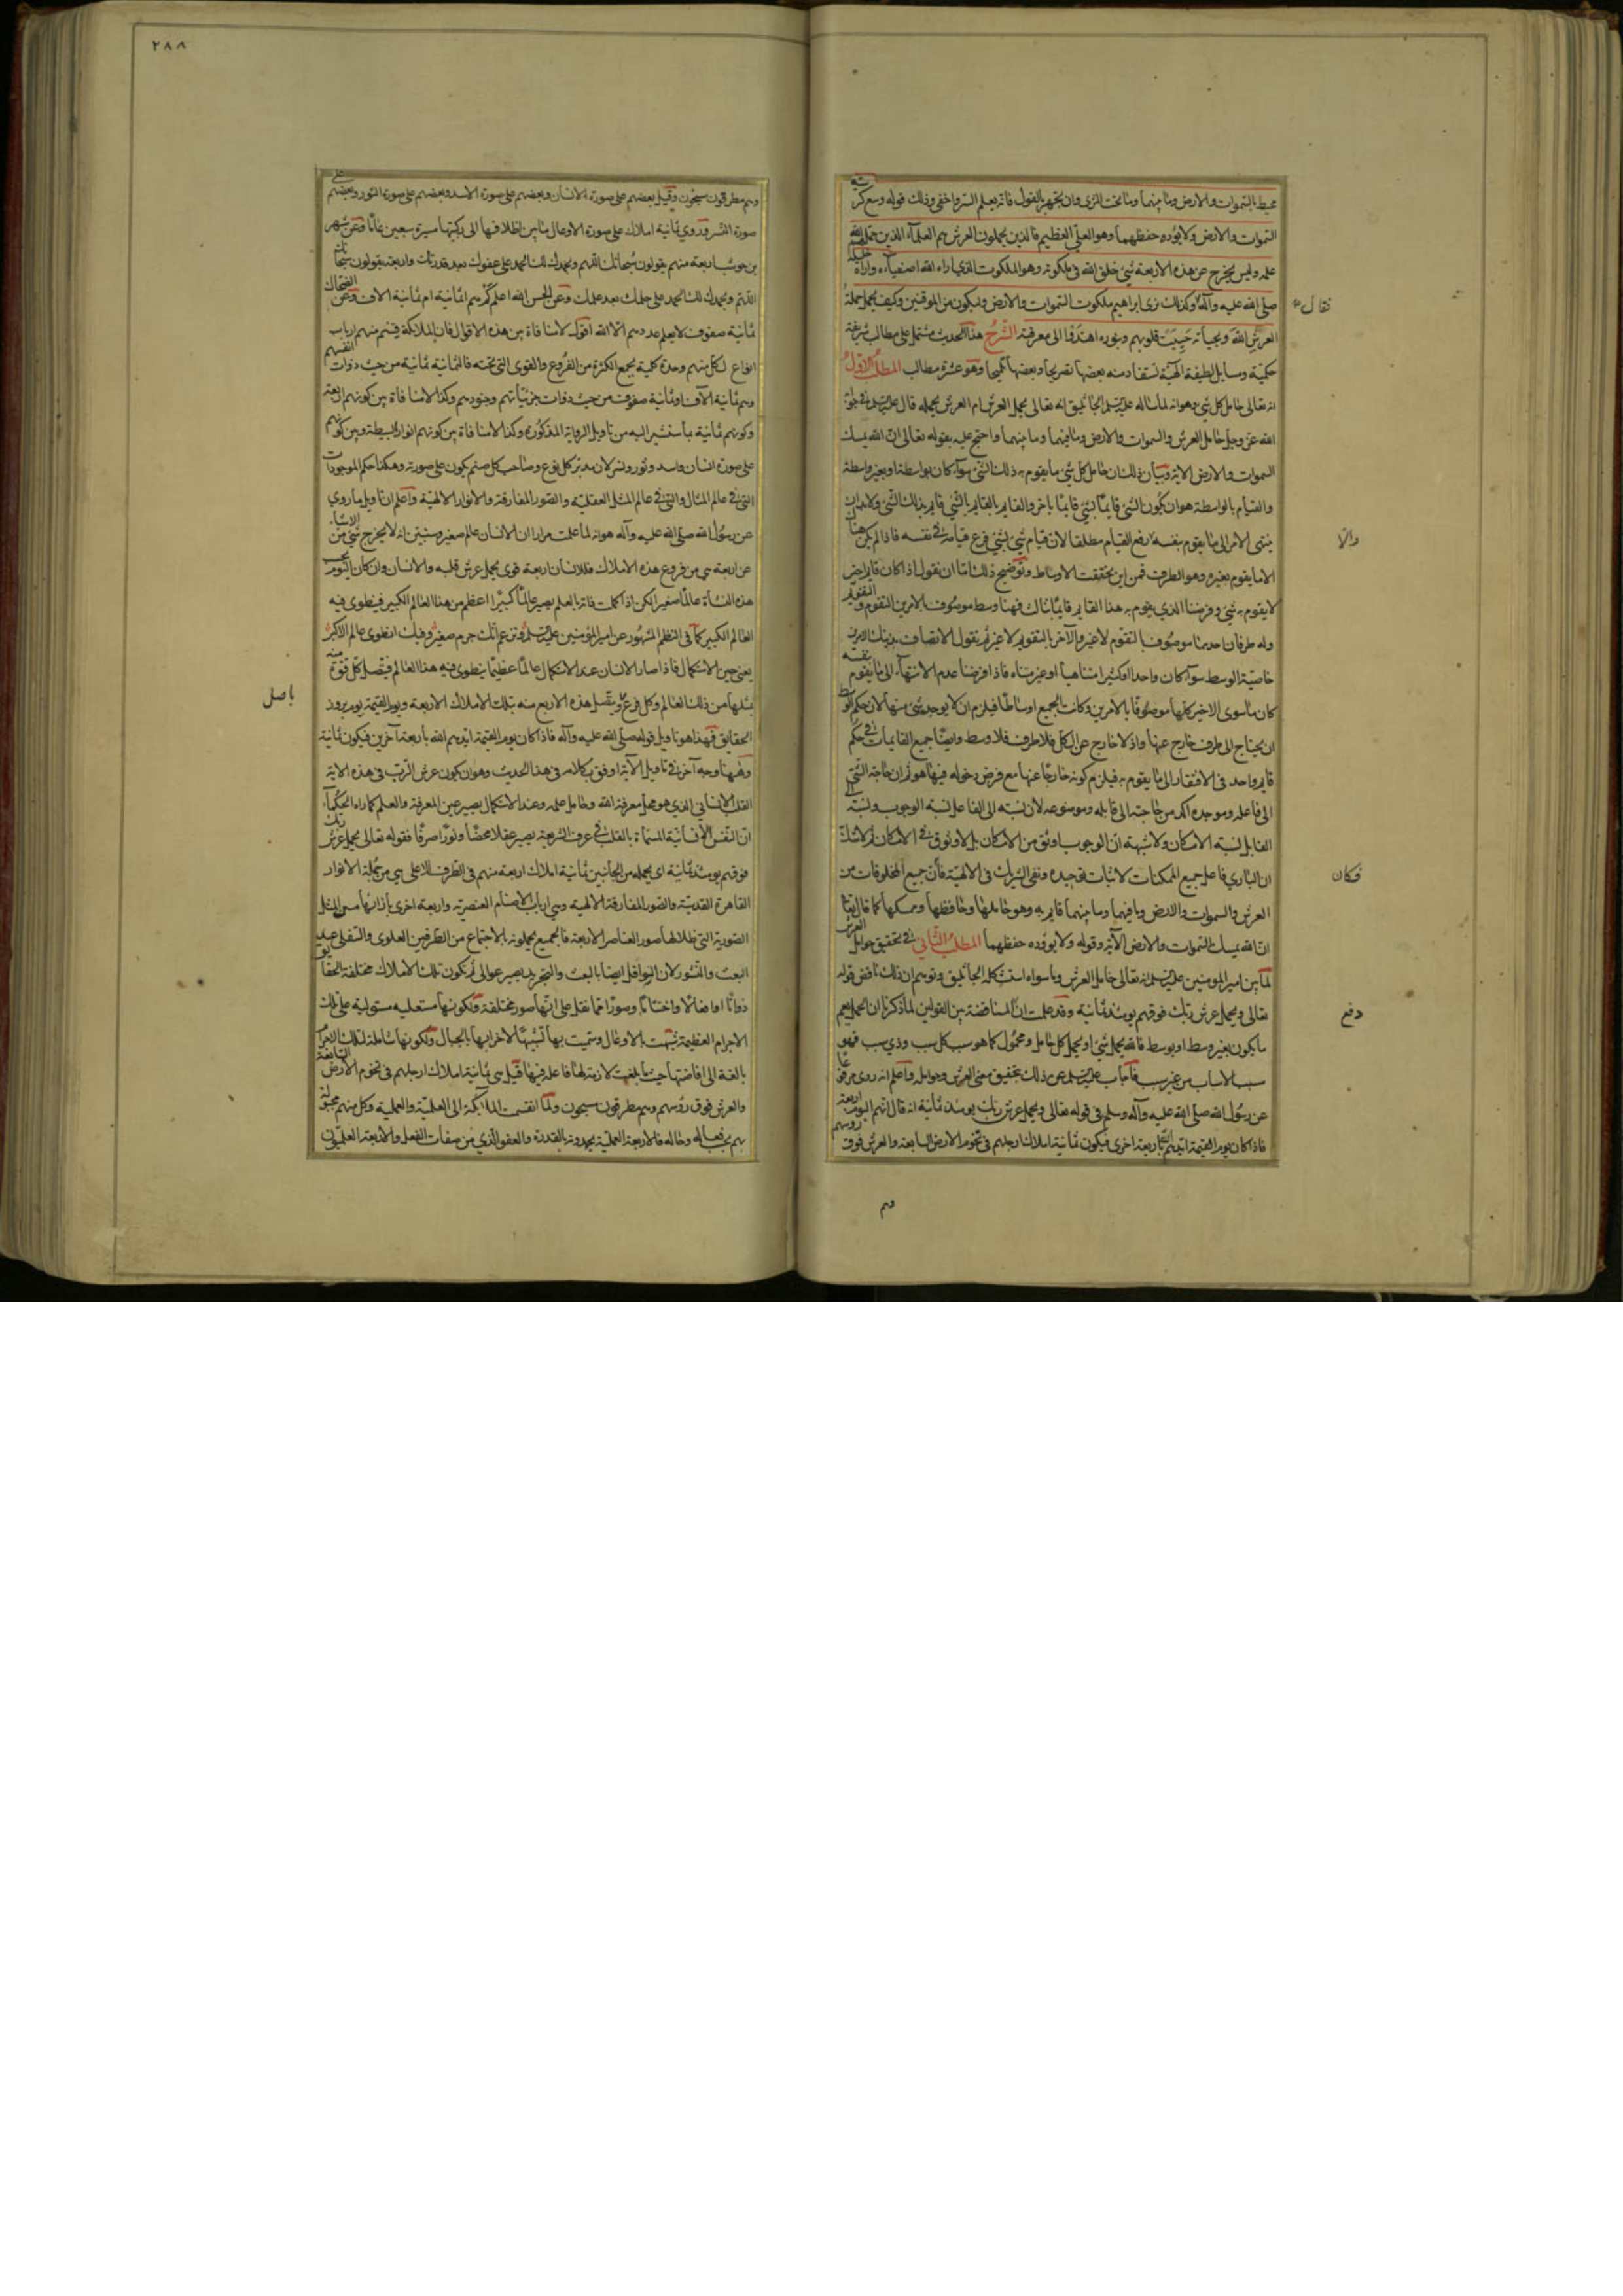 محيط بالسموات والارض وما بينهما وما تحت الثرى وان تجهر بالقول فانه يعلم السر واخفى وذلك قوله وسع كرسيه
السموات والارض ولا يؤده حفظهما وهو العلى العظيم فالذين يحملون العرش هم العلماء الذين حملهم الله
علمه وليس يخرج عن هذه الاربعة شئ خلق الله فى ملكوته وهو الملكوت الذى اراه الله اصفياءه واراه خليله
صلى الله عليه وآله فقال وكذلك نرى ابراهيم ملكوت السموات والارض وليكون من الموقنين وكيف يحمل حملة
العرش الله وبحياته حييت قلوبهم وبنوره اهتدوا الى معرفته الشرح هذا الحديث مشتمل على مطالب شريفة
حكمية ومسايل لطيفة الهية نستفاد منه بعضها تصريحا وبعضها تلميحا وهو عشرة مطالب المطلب الاول
انه تعالى حامل كل شئ وهو انه لما ساله الجاثليق انه تعالى يحمل العرش ام العرش يحمله قال فى جوابه
الله عز وجل حامل العرش والسموات والارض وما فيهما وما بينهما واحتج عليه بقوله تعالى ان الله يمسك
السموات والارض الاية وبيان ذلك ان حامل كل شئ ما يقوم به ذلك الشئ سواء كان بواسطة او بغير واسطة
والقيام بالواسطة هو ان يكون الشئ قايما بشئ قايما باخر والقايم بالقايم بالشئ قايم بذلك الشئ ولابد ان
ينتهى الامر الى ما يقوم بنفسه والا رفع القيام مطلقا لان قيام شئ بشئ فرع قيامه فى نفسه فاذا لم يكن هنا
الا ما يقوم بغيره وهو الطرف فمن اين تحققت الاوساط وتوضيح ذلك اما ان نقول اذا كان قايم اخر
لا يقوم به شئ وفرضنا الذى يقوم به هذا القايم قايما بثالث فهنا وسط موصوف بالامرين التقوم والتقويم
وله طرفان احدهما موصوف بالتقوم لا غير والآخر بالتقويم لا غير ثم نقول الاتصاف بذينك الامرين
خاصية الوسط سواء كان واحدا او كثيرا متناهيا او غير متناه فاذا فرضنا عدم الانتهاء الى ما يقوم بنفسه
كان ما سوى الاخير كلها موصوفا بالامرين وكانت الجميع اوساطا فيلزم ان لا يوجد شئ منها لان حكم الوسط
ان يحتاج الى طرف خارج عنها واذ لا خارج عن الكل فلا طرف فلا وسط وايضا جميع القايمات فى حكم
قايم واحد فى الافتقار الى ما يقوم به فيلزم كونه خارجا عنها مع فرض دخوله فيها هو ثم ان حاجة الشئ
الى فاعله وموجده اكد من حاجته الى قابله وموضوعه لان نسبته الى الفاعل نسبة الوجوب ونسبته الى
القابل نسبة الامكان ولا شبهة ان الوجوب اوثق من الامكان بل لا وثوق فى الامكان ثم لا شك
ان البارى فاعل جميع الممكنات لاثبات توحيده ونفى الشريك فى الالهية فكان جميع المخلوقات من
العرش والسموات والارض وما فيهما وما بينهما قايم به وهو حاملها وحافظها وممسكها كما قال تعالى
ان الله يمسك السموات والارض الآية وقوله ولا يؤده حفظهما المطلب الثانى فى تحقيق حوامل العرش
لما بين امير المومنين انه تعالى حامل العرش وما سواه استشكله الجاثليق وتوهم ان ذلك ناقض قوله
تعالى ويحمل عرش ربك فوقهم يومئذ ثمانية وقد علمت دفع المناقضة بين القولين لما ذكرنا ان الحمل يعم
ما يكون بغير وسط او بوسط فالله يحمل شئ او يحمل كل حامل ومحمول كما هو سبب كل سبب وذى سبب فهو
سبب الاسباب من غير سبب فاجاب عن ذلك بتحقيق معنى العرش وحوامله واعلم انه روى مرفوعا
عن رسول الله صلى الله عليه وآله وسلم فى قوله تعالى ويحمل عرش ربك يومئذ ثمانية انه قال انهم اليوم اربعة
فاذا كان يوم القيمة ايدهم الله باربعة اخرى فيكون ثمانية املاك ارجلهم فى تخوم الارض السابعة والعرش فوق روسهم
وهم
فقال
والا
فكان
دفع
٢٨٨
وهم مطرقون سبحون وقيل بعضهم على صورة الانسان وبعضهم على صورة الاسد وبعضهم على صورة الثور وبعضهم على
صورة النسر وروى ثمانية املاك على صورة الاوعال ما بين اظلافها الى ركبتها مسيرة سبعين عاما وعن شهر
بن حوشب اربعة منهم يقولون سبحانك اللهم وبحمدك لك الحمد على عفوك بعد قدرتك واربعة يقولون سبحانك
اللهم وبحمدك لك الحمد على حلمك بعد علمك وعن الحسن الله اعلم كم هم اثمانية ام ثمانية الاف وعن الضحاك
ثمانية صفوف لا يعلم عددهم الا الله اقول لا منافاة بين هذه الاقوال فان الملائكة قسم منهم ارباب
انواع لكل منهم وحدة كلية يجمع الكثرة من الفروع والقوى التى تحته فالثمانية ثمانية من حيث ذوات انفسهم
وهم ثمانية الاف او ثمانية صفوف من حيث ذوات جزئياتهم وجنودهم وكذا لا منافاة بين كونهم اربعة
وكونهم ثمانية بما سنشير اليه من تاويل الرواية المذكورة وكذا لا منافاة بين كونهم انوار البسيطة وبين كونهم
على صورة انسان واسد وثور ونسر لان مدبر كل نوع وصاحب كل صنم يكون على صورته وهكذا حكم الموجودات
التى فى عالم المثال والتى فى عالم المثل العقلية والصور المفارقة والانوار الالهية واعلم ان تاويل ما روى
عن رسول الله صلى الله عليه وآله هو انه لما علمت مرارا ان الانسان عالم صغير وسنبين انه لا يخرج شئ من الاشياء
عن اربعة هى من فروع هذه الاملاك فللانسان اربعة قوى يحمل عرش قلبه والانسان وان كان اليوم بحسب
هذه النشأة عالما صغيرا لكن اذا كملت ذاته بالعلم يصير عالما كبيرا اعظم من هذا العالم الكبير فينطوى فيه
العالم الكبير كما فى النظم المشهور عن امير المؤمنين وتزعم انك جرم صغير وفيك انطوى عالم الاكبر
يعنى حين الاستكمال فاذا صار الانسان عند الاستكمال عالما عظيما ينطوى فيه هذا العالم فيتصل كل قوة منه
بمثلها من ذلك العالم وكل فرع باصل ويتصل هذه الاربع منه بتلك الاملاك الاربعة ويوم القيمة يوم بروز
الحقايق فهذا هو تاويل قوله صلى الله عليه وآله فاذا كان يوم القيمة ايدهم الله باربعة آخرين فيكون ثمانية
وههنا وجه آخر فى تاويل الآية اوفق بكلامه فى هذا الحديث وهو ان يكون عرش الرب فى هذه الاية
القلب الانسانى الذى هو محل معرفة الله وحامل علمه وعند الاستكمال يصير عين المعرفة والعلم كما راه الحكماء
ان النفس الانسانية المسماة بالقلب فى عرف الشريعة يصير عقلا محضا ونورا صرفا فقوله تعالى يحمل عرش ربك
فوقهم يومئذ ثمانية اى يحمله من الجانبين ثمانية املاك اربعة منهم فى الطرف الاعلى هى من جملة الانوار
القاهرة القدسية والصور المفارقة الالهية وهى ارباب الاصنام العنصرية واربعة اخرى بازائها من المثل
الصورية التى ظلالها صور العناصر الاربعة فالجميع يحملونه بالاجتماع من الطرفين العلوى والسفلى عند
البعث والنشور لان السوافل ايضا بالبعث والتجريد يصير عوالى ثم تكون تلك الاملاك مختلفة الحقايق
ذواتا اوافعالا واختلافا وصورا مما نقل على انها صور مختلفة ولكونها مستعلية مستولية على تلك
الاجرام العظيمة شبهت بالاوعال وسميت بها تشبيها لاجرامها بالجبال ولكونها شاملة لتلك الاجرام
بالغة الى اقاصيها حيث ما بلغت لازمة لها فاعلة فيها قيل هى ثمانية املاك ارجلهم فى تخوم الارض السابعة
والعرش فوق رؤسهم وهم مطرقون سبحون ولما انقسمت الملائكة الى العلمية والعملية وكل منهم
بهم بحسب فعاله وحاله فالاربعة العملية يحمدونه بالقدرة والعفو الذى من صفات الفعل والاربعة العلميون
باصل